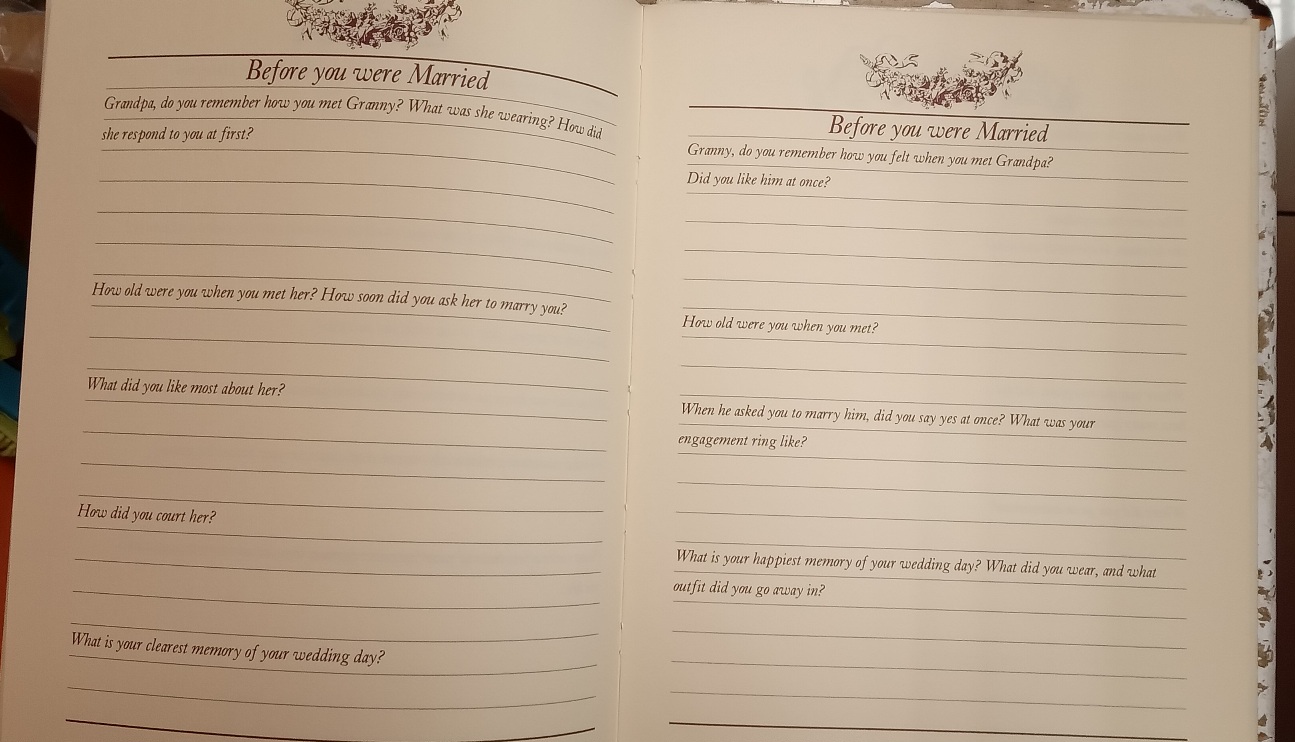 Before you were Married
Grandpa, do you remember how you met Granny? What was she wearing? How did
she respond to you at first?
How old were you when you met her? How soon did you ask her to marry you?
What did you like most about her?
How did you court her?
What is your clearest memory of your wedding day?
Before you were Married
Granny, do you remember how you felt when you met Grandpa?
Did you like him at once?
How old were you when you met?
When he asked you to marry him, did you say yes at once? What was your
engagement ring like?
What is your happiest memory of your wedding day? What did you wear, and what
outfit did you go away in?